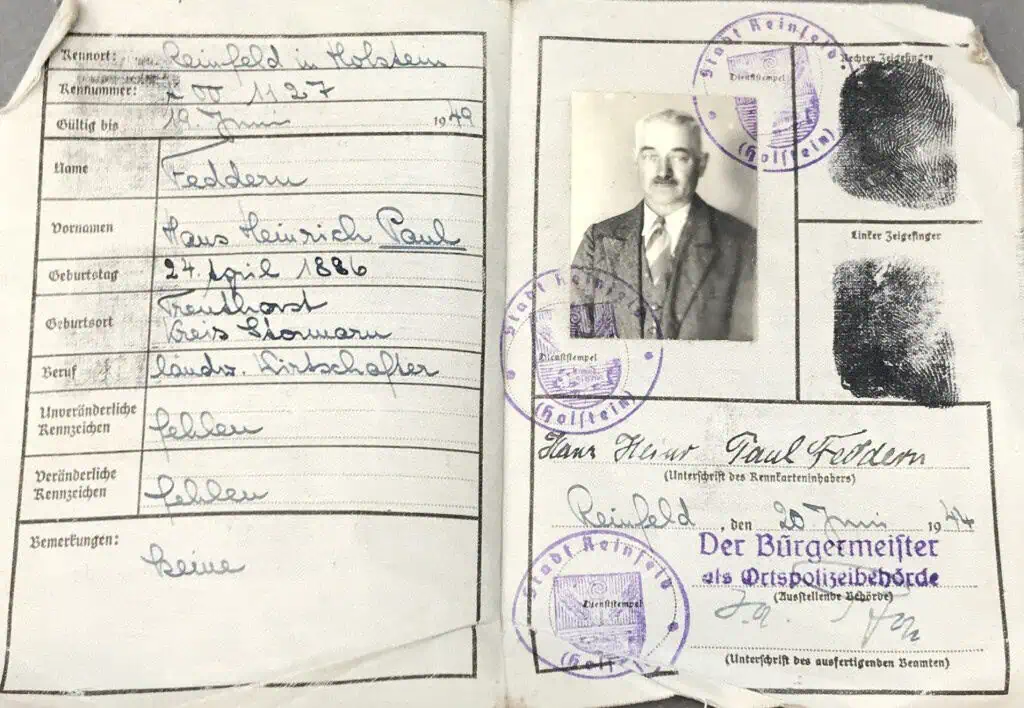 Kennort: Reinfeld in Holstein
Kennummer: 00 1127
Gültig bis 19. Juni 1949
Name Feddern
Vornamen Hans Heinrich Paul
Geburtstag 24. April 1886
Geburtsort Trenthorst
Kreis Stormarn
Beruf landw. Wirtschafter
Unveränderliche
Kennzeichen fehlen
Veränderliche
Kennzeichen fehlen
Bemerkungen:
keine
Stadt Reinfeld
Dienststempel
(Holstein)
Rechter Zeigefinger
Linker Zeigefinger
Stadt Reinfeld
Dienststempel
(Holstein)
Hans Heinr Paul Feddern
(Unterschrift des Kennkarteninhabers)
Reinfeld, den 20 Juni 1944
Der Bürgermeister
als Ortspolizeibehörde
(Ausstellende Behörde)
Stadt Reinfeld
Dienststempel
(Unterschrift des ausfertigenden Beamten)